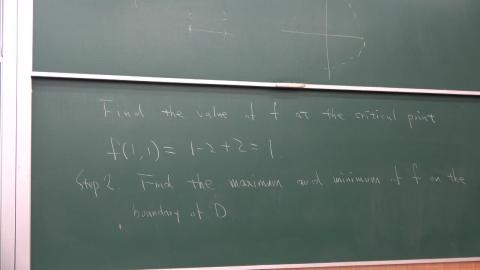 Find the value of f at the critical point
f(1,1) = 1-2+2 = 1.
Step 2. Find the maximum and minimum of f on the
boundary of D